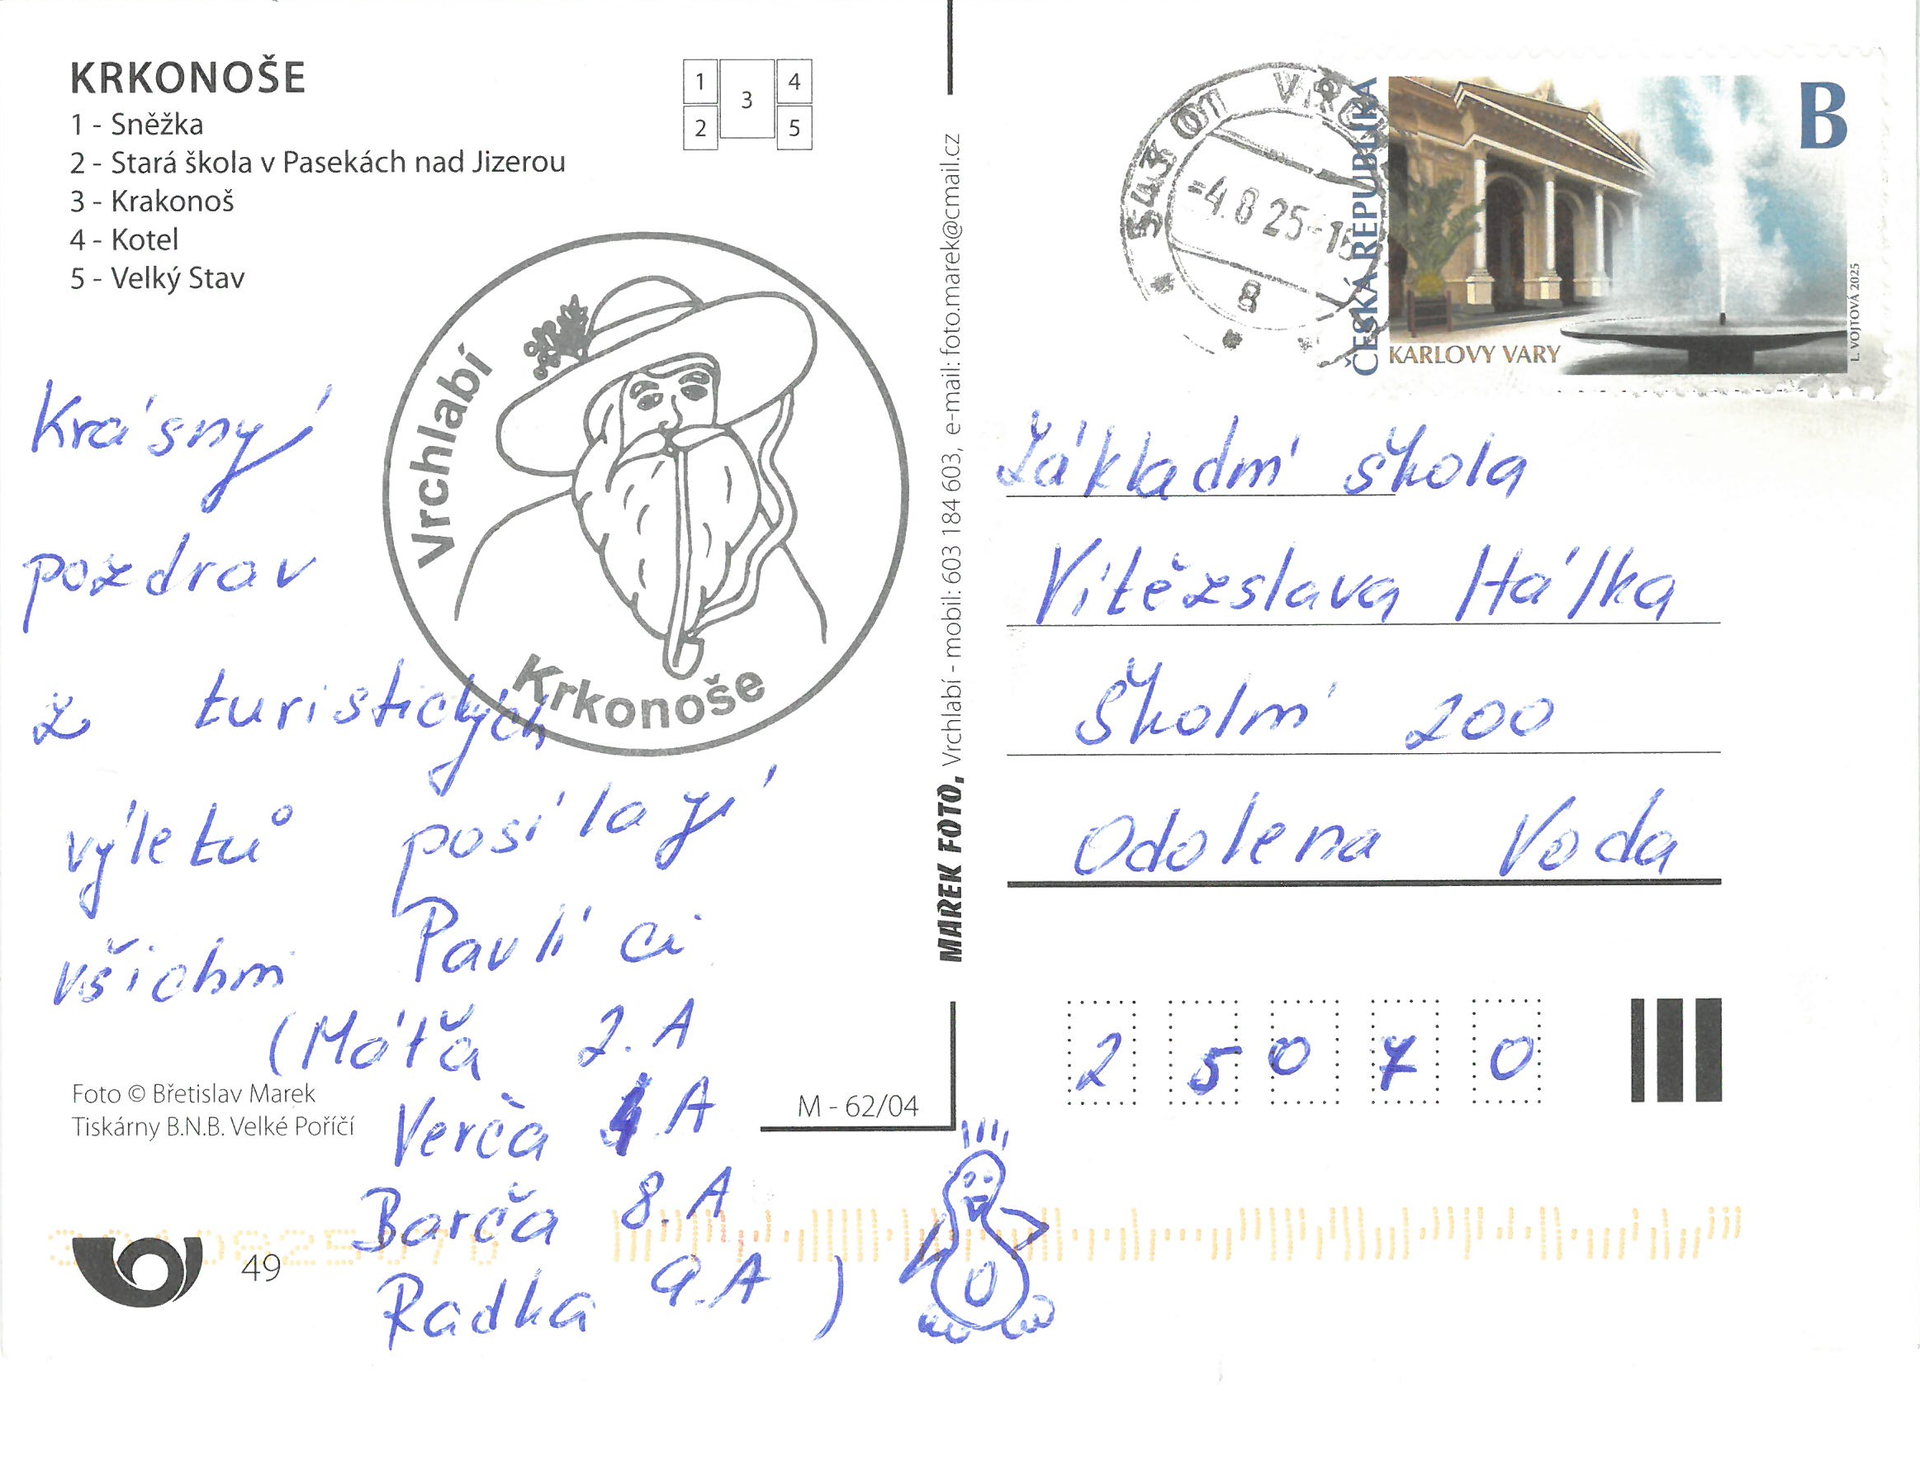 KRKONOŠE
1 - Sněžka
2 - Stará škola v Pasekách nad Jizerou
3 - Krakonoš
4 - Kotel
5 - Velký Stav
1 3 4
2 5
Vrchlabí
Krkonoše
Krásný
pozdrav
z turistických
výletů posílají
všichni Pavlíci
(Máťa 2.A
Verča 4.A
Barča 8.A
Radka 9.A)
Foto © Břetislav Marek
Tiskárny B.N.B. Velké Poříčí
49
M - 62/04
MAREK FOTO, Vrchlabí - mobil: 603 184 603, e-mail: foto.marek@cmail.cz
543 01
-4.8.25-
8
ČESKÁ REPUBLIKA
B
KARLOVY VARY
L. VOJTOVÁ 2025
Základní škola
Vítězslava Hálka
Školní 200
Odolena Voda
2 5 0 7 0